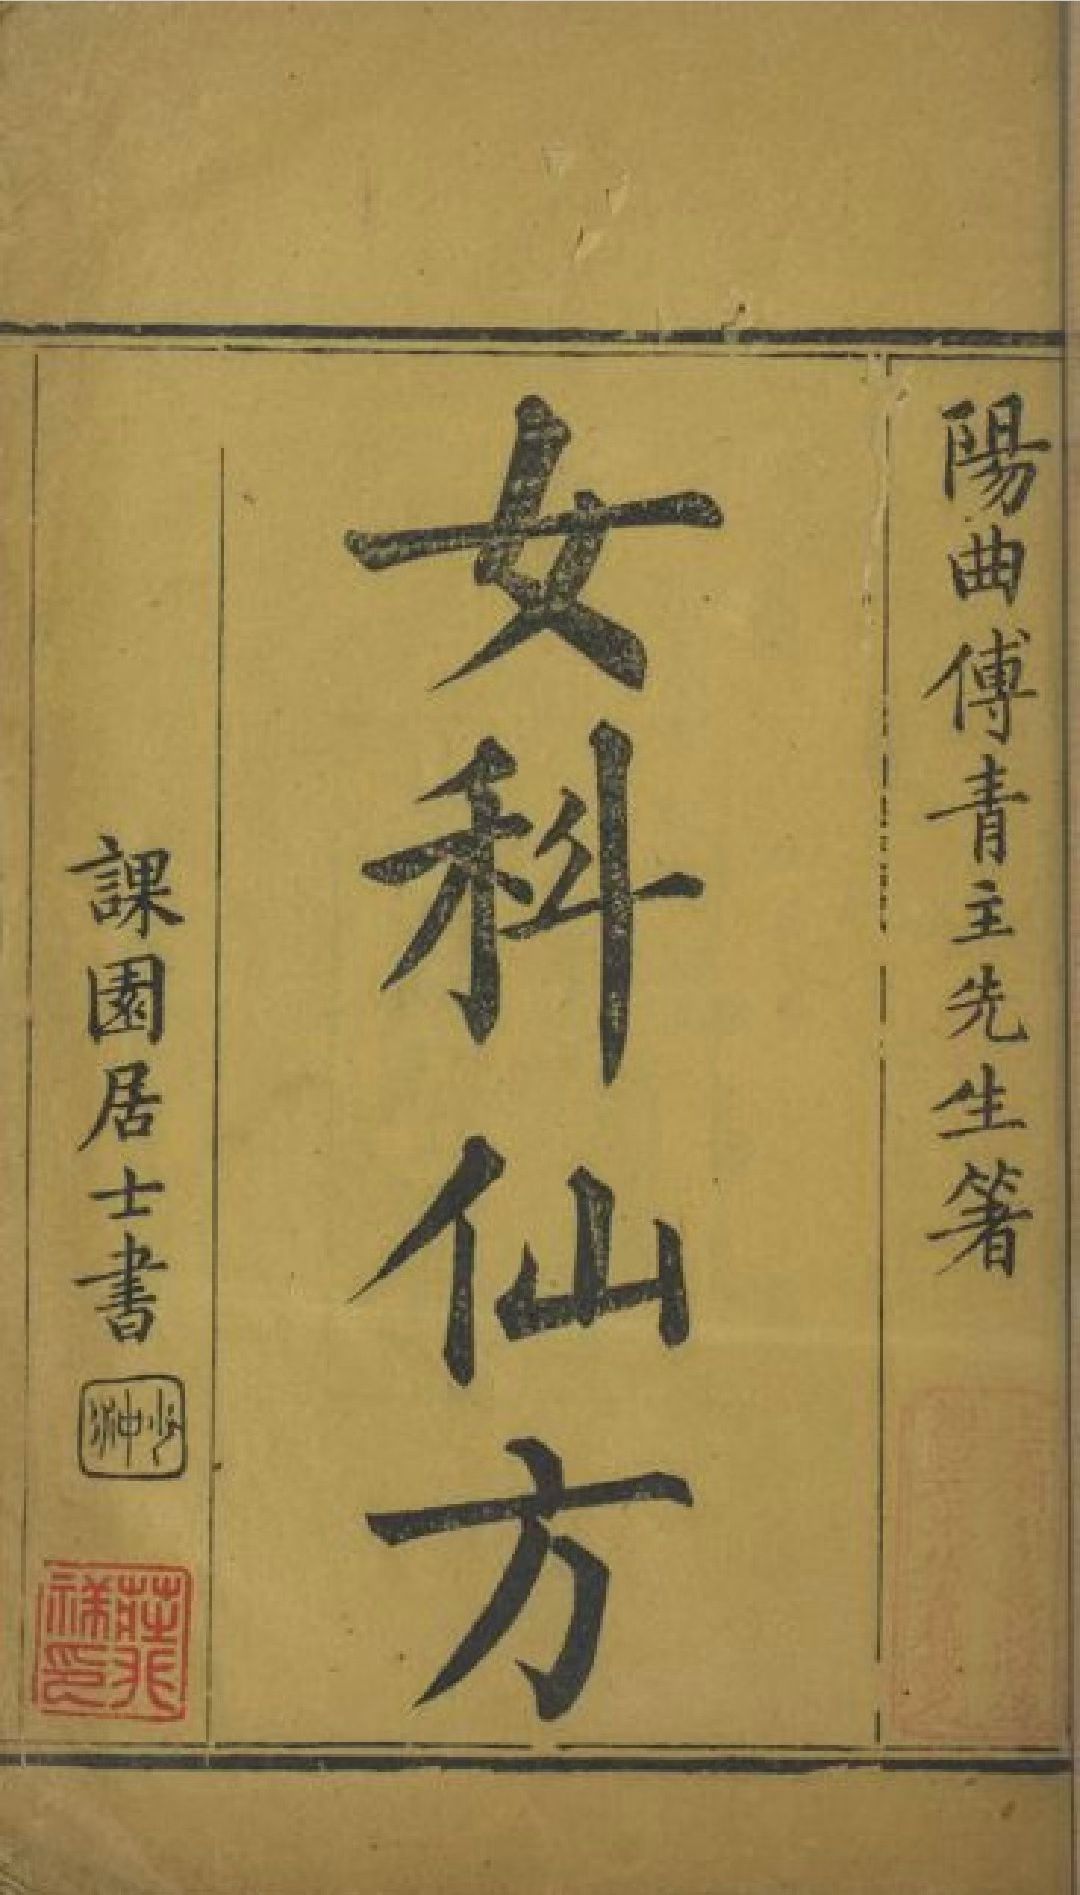 陽曲傅青主先生著
女科仙方
課園居士書